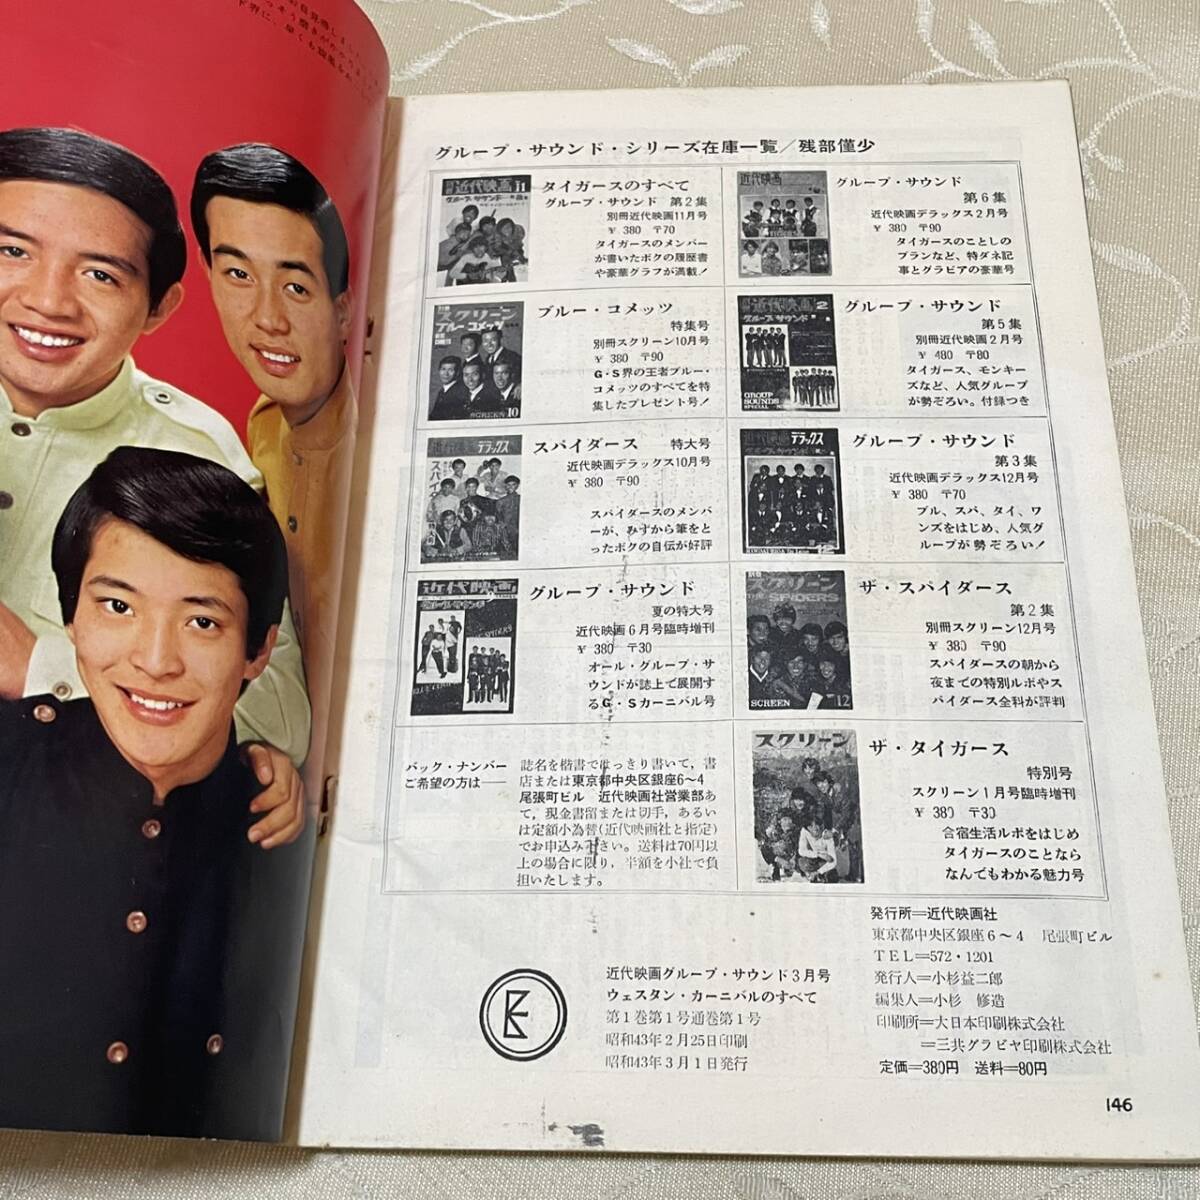 グループ・サウンド・シリーズ在庫一覧／残部僅少
タイガースのすべて
グループ・サウンド 第2集
別冊近代映画11月号
￥380 〒70
タイガースのメンバー
が書いたボクの履歴書
や豪華グラフが満載!
ブルー・コメッツ
特集号
別冊スクリーン10月号
￥380 〒90
G・S界の王者ブルー・
コメッツのすべてを特
集したプレゼント号!
スパイダース 特大号
近代映画デラックス10月号
￥380 〒90
スパイダースのメンバ
ーが、みずから筆をと
ったボクの自伝が好評
グループ・サウンド
夏の特大号
近代映画6月号臨時増刊
￥380 〒30
オール・グループ・サ
ウンドが誌上で展開す
るG・Sカーニバル号
グループ・サウンド
第6集
近代映画デラックス2月号
￥380 〒90
タイガースのことしの
プランなど、特ダネ記
事とグラビアの豪華号
グループ・サウンド
第5集
別冊近代映画2月号
￥480 〒80
タイガース、モンキー
ズなど、人気グループ
が勢ぞろい。付録つき
グループ・サウンド
第3集
近代映画デラックス12月号
￥380 〒70
ブル、スパ、タイ、ワ
ンズをはじめ、人気グ
ループが勢ぞろい!
ザ・スパイダース
第2集
別冊スクリーン12月号
￥380 〒90
スパイダースの朝から
夜までの特別ルポやス
パイダース全科が評判
ザ・タイガース
特別号
スクリーン1月号臨時増刊
￥380 〒30
合宿生活ルポをはじめ
タイガースのことなら
なんでもわかる魅力号
バック・ナンバー
ご希望の方は──
誌名を楷書ではっきり書いて，書
店または東京都中央区銀座6～4
尾張町ビル 近代映画社営業部あ
て，現金書留または切手，あるい
は定額小為替(近代映画社と指定)
でお申込み下さい。送料は70円以
上の場合に限り，半額を小社で負
担いたします。
近代映画グループ・サウンド3月号
ウェスタン・カーニバルのすべて
第1巻第1号通巻第1号
昭和43年2月25日印刷
昭和43年3月1日発行
発行所＝近代映画社
東京都中央区銀座6～4 尾張町ビル
TEL＝572・1201
発行人＝小杉益二郎
編集人＝小杉 修造
印刷所＝大日本印刷株式会社
＝三共グラビヤ印刷株式会社
定価＝380円 送料＝80円
146